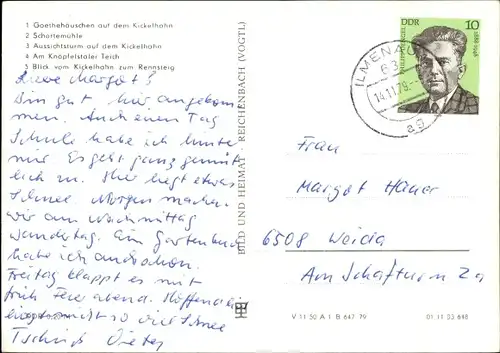 1 Goethehäuschen auf dem Kickelhahn
2 Schortemühle
3 Aussichtsturm auf dem Kickelhahn
4 Am Knöpfelstaler Teich
5 Blick vom Kickelhahn zum Rennsteig
Liebe Margot!
Bin gut hier angekom
men. Auch einen Tag
Schule habe ich hinter
mir. Es geht ganz gemüt
lich zu. Hier liegt etwas
Schnee. Morgen machen
wir am Nachmittag
Wandertag. Ein Gartenbuch
habe ich auch schon.
Freitag klappt es mit
früh Feierabend. Hoffentlich
liegt nicht so viel Schnee
Tschüß Dieter
BILD UND HEIMAT · REICHENBACH (VOGTL)
DDR 10
ILMENAU
63
14.11.79
ag
Frau
Margot Häner
6508 Weida
Am Schafturm 2a
V 11 50 A 1 B 647 79
01 11 03 848